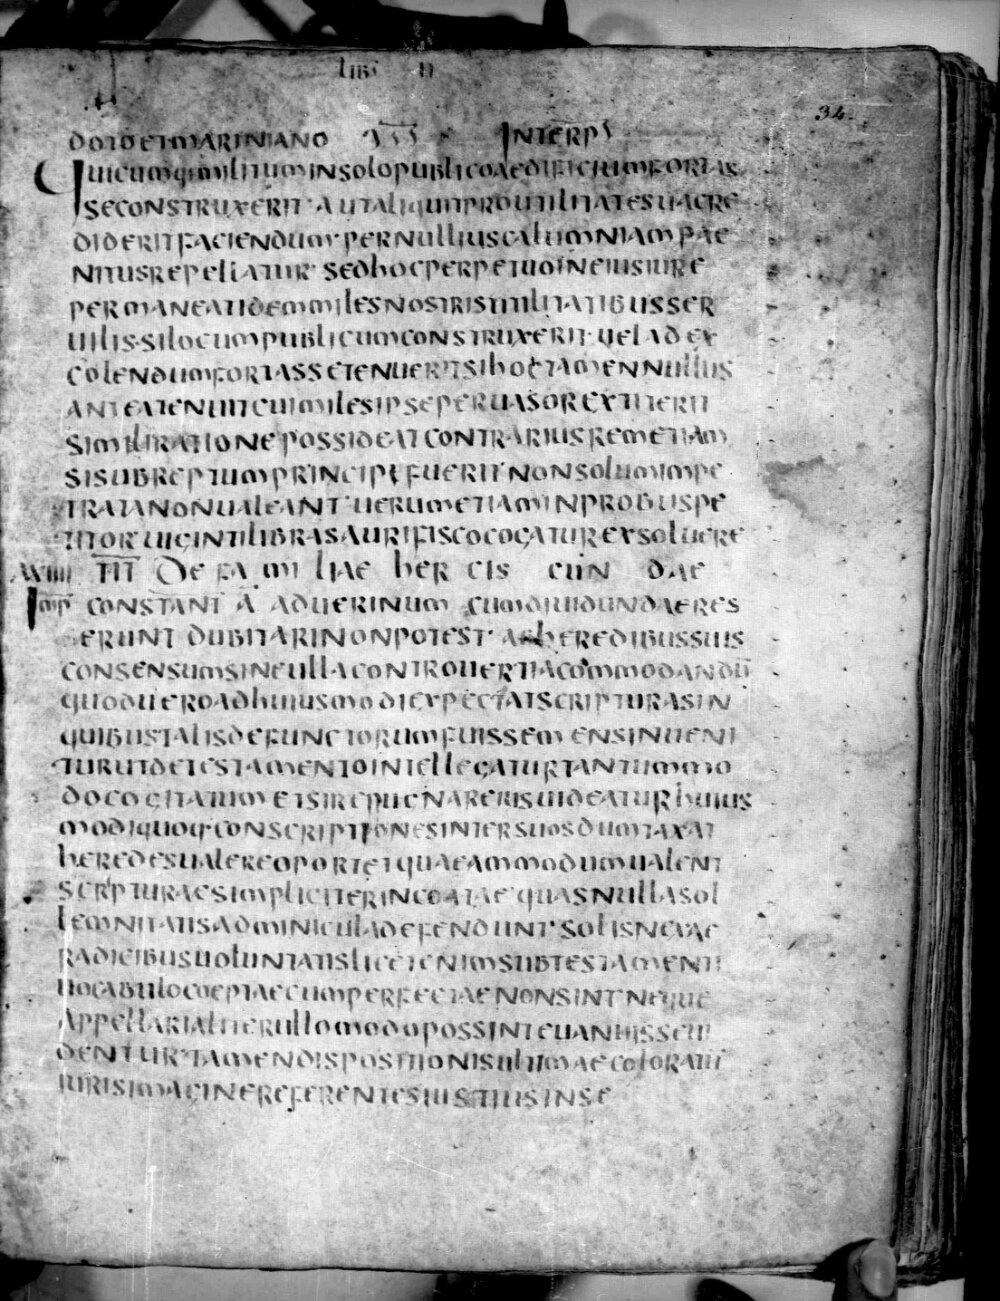 LIB II
34.
DOTO ET MARINIANO V̅S̅S̅ INTERP̅
QUICUMQ· MILITUM IN SOLO PUBLICO AEDIFICIUM FORTAS
SE CONSTRUXERIT AUT ALIQUIT PRO UTILITATE SUA CRE
DIDERIT FACIENDUM PER NULLIUS CALUMNIAM PAE
NITUS REPELLATUR SED HOC PERPETUO IN EIUS IURE
PERMANEAT IDEM MILES NOSTRIS UTILITATIBUS SER
UILIS SI LOCUM PUBLICUM CONSTRUXERIT UEL AD EX
COLENDUM FORTASSE TENUERIT SI HOC TAMEN NULLUS
ANTEA TENUIT CUI MILES IPSE PERUASOR EXTITERIT
SIMILI RATIONE POSSIDEAT CONTRARIUS REM ETIAM
SI SUBREPTUM PRINCIPI FUERIT NON SOLUM IMPE
TRATA NON UALEANT UERUM ETIAM INPROBUS PE
TITOR UIGINTI LIBRAS AURI FISCO COGATUR EXSOLUERE
XXIIII TIT DE FAMILIAE HERCISCUNDAE
IMP̅ CONSTANT A̅ AD UERINUM CUM DIUIDUNDAE RES
ERUNT DUBITARI NON POTEST AB HEREDIBUS SUIS
CONSENSUM SINE ULLA CONTROUERTIA COMMODANDU̅
QUOD UERO ADHUIUSMODI EXPECTAT SCRIPTURAS IN
QUIBUS TALIS DEFUNCTORUM FUISSE MENS INUENI
TUR UT DE TESTAMENTO INTELLEGATUR TANTUMMO
DO COGITATUM ETSI REPUGNARE IUS UIDEATUR HUIUS
MODI QUOQ· CONSCRIPTIONES INTER SUOS DUMTAXAT
HEREDES UALERE OPORTET QUAEAMMODUM UALENT
SCRPTURAE SIMPLICITER INCOATAE QUAS NULLA SOL
LEMNITATIS ADMINICULA DEFENDUNT SOLIS NEXAE
RADICIBUS UOLUNTATIS LICET ENIM SUB TESTAMENTI
UOCABULO COEPTAE CUM PERFECTAE NON SINT NEQUE
APPELLARI ALITER ULLO MODO POSSINT EUANUISSE UI
DENTUR TAMEN DISPOSITIONIS ULTIMAE COLORATI
IURIS IMAGINE REFERENTES IUSTIUS INSE